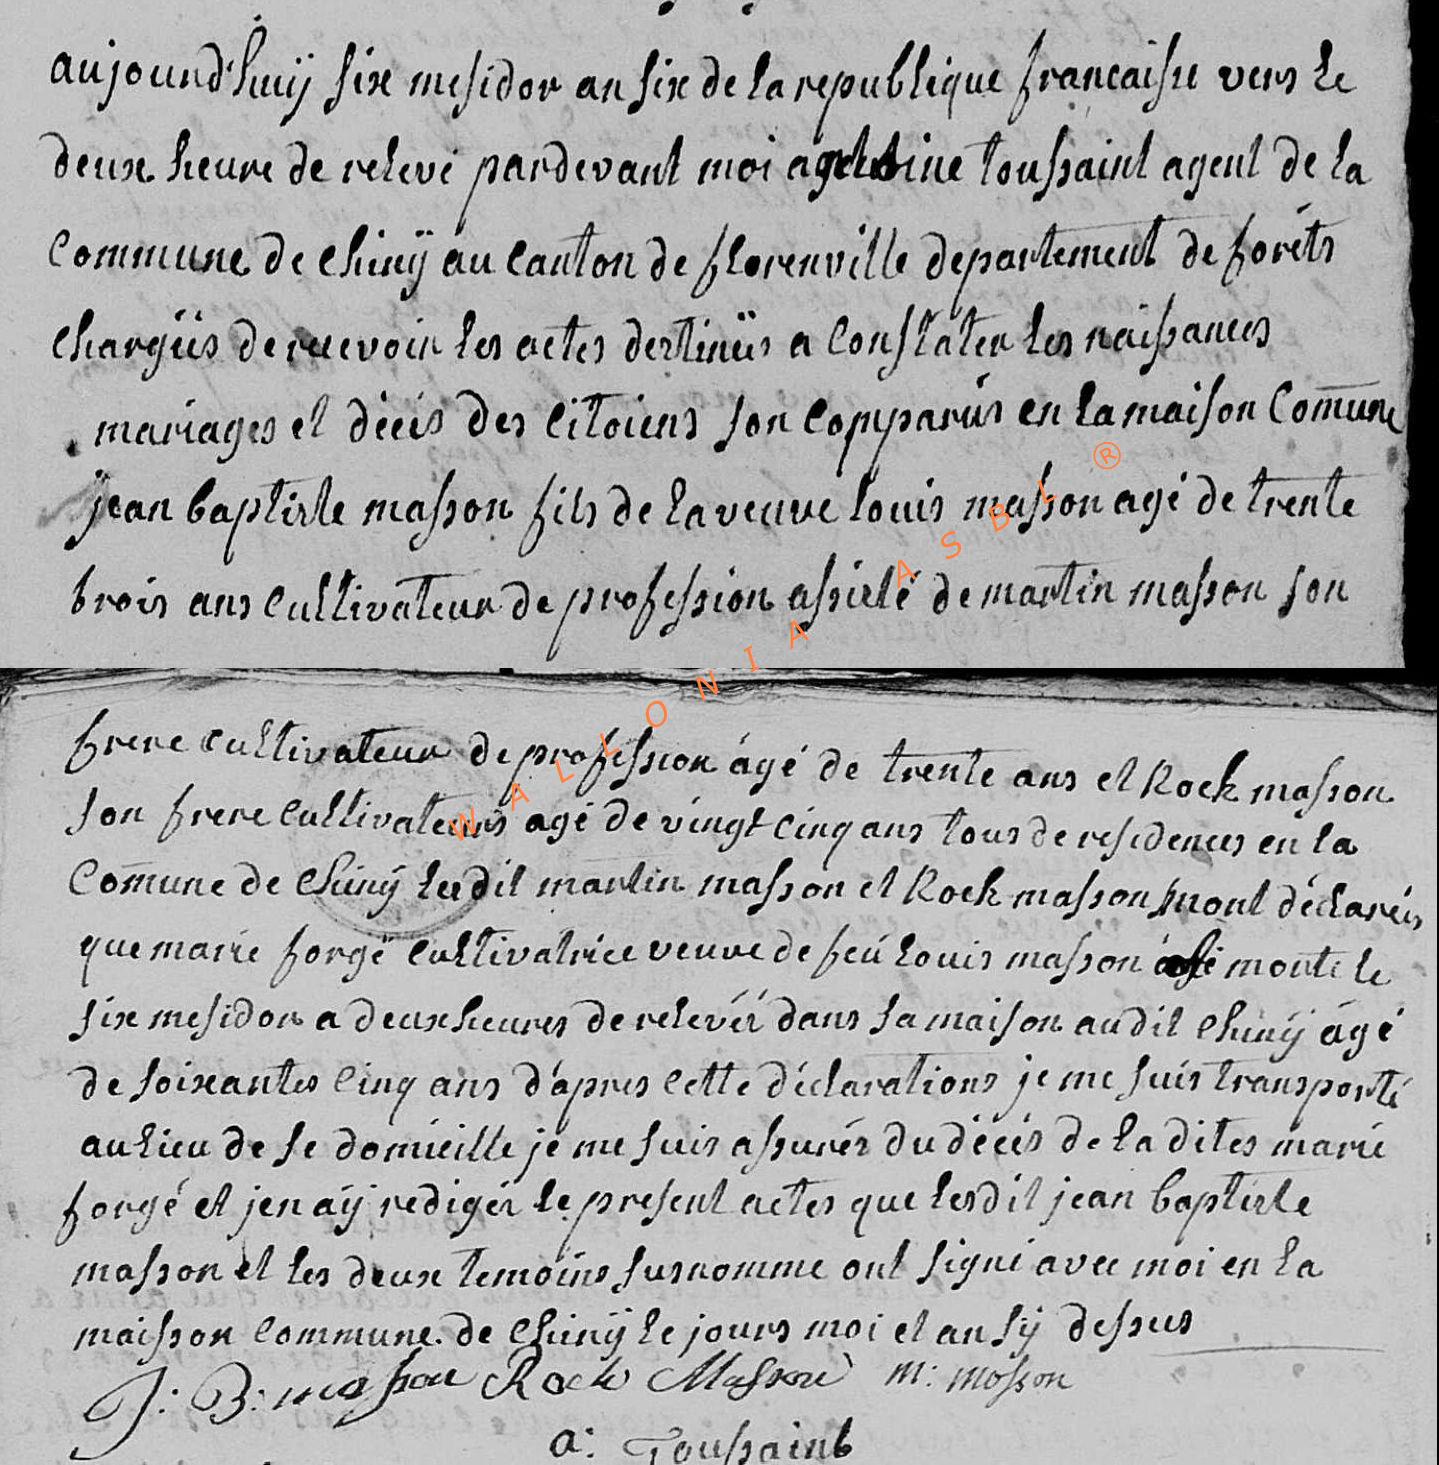 aujourd'huÿ six mesidor an six de la republique francaise vers le
deux heure de relevé pardevant moi toussaint agent de la
commune de chinÿ au canton de florenville departement de foréts
chargéis de recevoir les actes destinéis a constater les naissances
mariages et décés des citoiens son comparús en la maison comūne
jean baptiste masson fils de la veuve louis masson agé de trente
trois ans cultivateur de profession assisté de martin masson son
frere cultivateur de profession ágé de trente ans et Rock masson
son frere cultivateurs agé de vingt cinq ans tous de residences en la
comūne de chinÿ martin masson et Rock masson mont déclaréis
que marie forgé cultivatrice veuve de feú louis masson morte le
six mesidor a deux heures de relevéé dans sa maison audit chinÿ ágé
de soixantes cinq ans d'apres cette déclarations je me suis transporté
au lieu de se domicille je me suis assurér du décés de la dites marie
forgé et jen aÿ redigér le present actes que lesdit jean baptiste
masson et les deux temoins surnomme ont signé avec moi en la
maisson commune de chinÿ le jours moi et an sÿ dessus
J: B: masson Rock Masson m: masson
a: Toussaint
WALLONIA ASBL ®